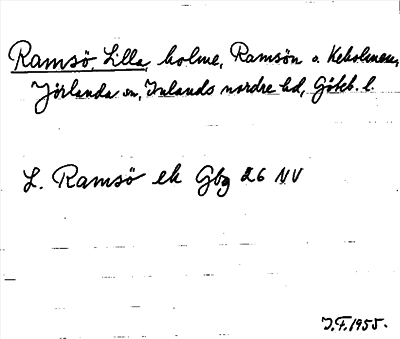 Ramsö, Lilla, holme, Ramsön o. Keholmen,
Jörlanda sn, Inlands nordre hd, Göteb. l.
L. Ramsö ek Gbg 26 NV
J.F. 1955.